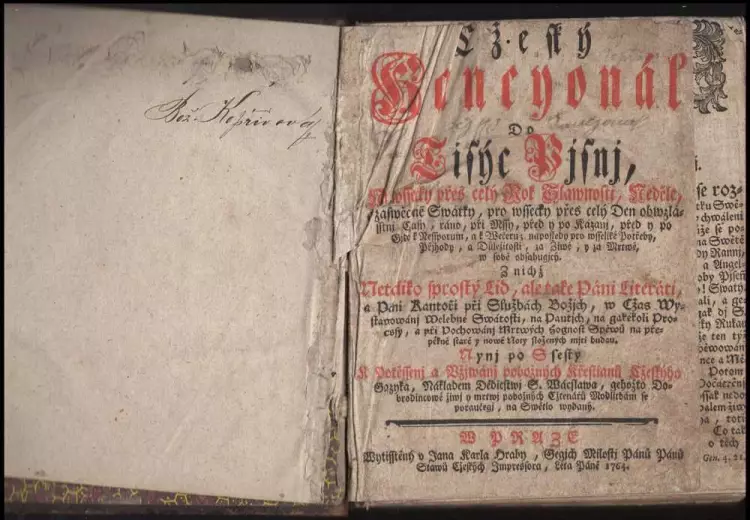 Bož. Kopřivová
Cžeský
Kancyonál
Do
Tisýc Pjsnj,
Na wssecky přes celý Rok Slawnosti, Neděle,
zaswěcené Swátky, pro wssecky přes celý Den obwzlá-
sstnj Časy, ráno, při Mssy, před y po Kázanj, před y po
a k Nessporum, a k Wečeru; naposledy pro wsseliké Potřeby,
Přjhody, a Důležitosti, za Žiwé, y za Mrtwé,
w sobě obsahugjcý.
Z nichž
Netoliko sprostý Lid, ale také Páni Literáti,
a Páni Kantoři při Službách Božjch, w Cžas Wy-
stawowánj Welebné Swátosti, na Pautjch, na gakékoli Pro-
cessý, a při Pochowánj Mrtwých hognost Spěwů na pře-
pěkné staré y nowé Noty složených mjti budau.
Nynj po Ssesté
K Potěssenj a Vžjwánj pobožných Křestianů Cžeského
Gazyka, Nákladem Dědictwj S. Wácslawa, gehožto Do-
brodincowé žiwj y mrtwj pobožných Cžtenářů Modlitbám se
poraučegj, na Swětlo wydaný.
W PRAZE
Wytisstěný v Jana Karla Hraby, Gegich Milostj Pánů Pánů
Stawů Cžeských Jmpressora, Léta Páně 1764.
se roz-
chwálení
že se po-
na Swěté
dy Rannj,
a Angel-
oby Pjseň
! Swatý
ali, a ge-
jak dj S.
Potom
Co tak
o těch
Gen. 4. 21.